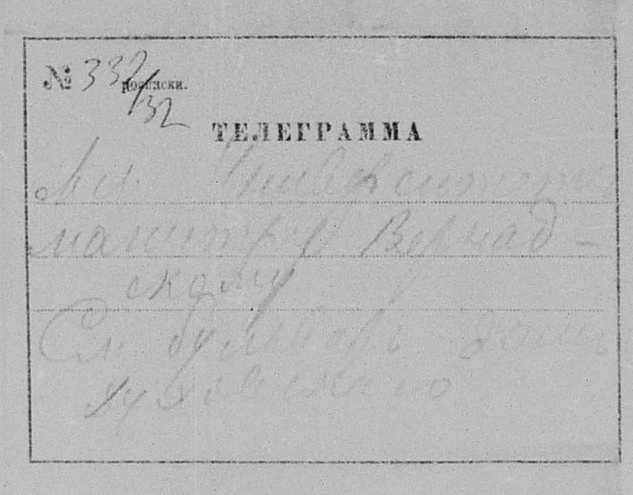 № 332/32
росписки.
ТЕЛЕГРАММА
Мск. Университета
магистру Вернад-
скому
См бульваръ домъ